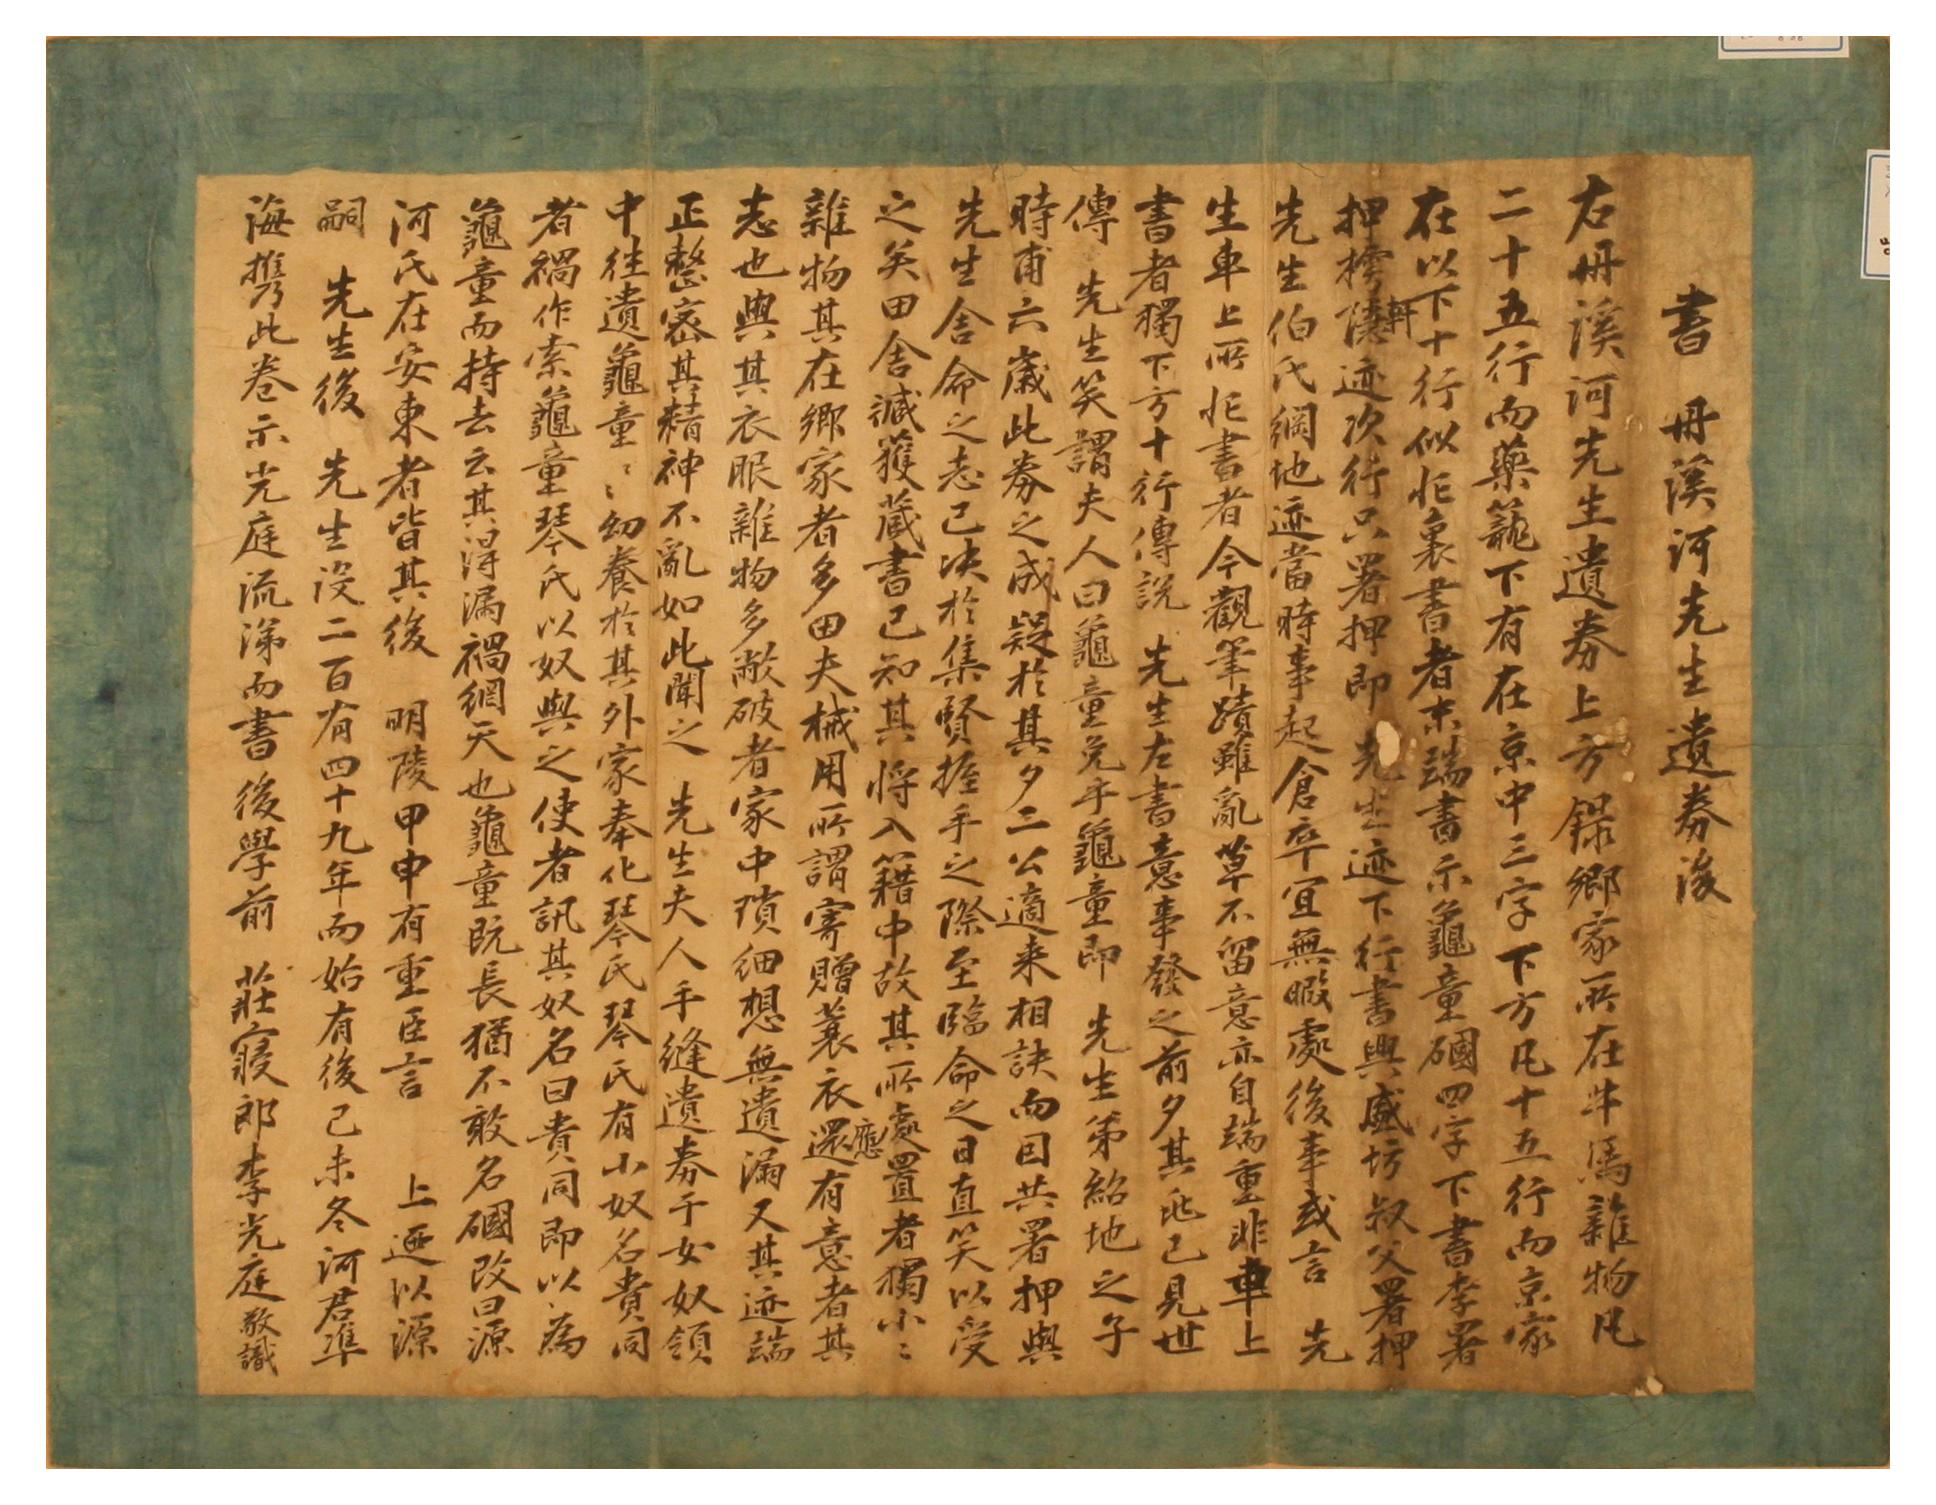 書 丹溪河先生遺券後
右丹溪河先生遺券上方錄鄉家所在牛馬雜物凡
二十五行而藥籠下有在京中三字下方凡十五行而京家
在以下十行似非裏書者末端書示龜童䃥四字下書李署
押樗軒迹次行只署押即 先生迹下行書與盛坊叔父署押
先生伯氏綱地迹當時事起倉卒宜無暇處後事或言 先
生車上所非書者今觀筆蹟雖亂草不留意亦自端重非車上
書者獨下方十行傳說 先生左書意事發之前夕其兆已見世
傳 先生笑謂夫人曰龜童免乎龜童即 先生弟紹地之子
時甫六歲此券之成疑於其夕二公適來相訣而因共署押與
先生舍命之志已決於集賢握手之際至臨命之日直笑以受
之矣田舍減獲藏書已知其將入籍中故其所應處置者獨小〻
雜物其在鄉家者多田夫械用所謂寄贈蓑衣還有意者其
志也與其衣服雜物多敝破者家中瑣細想無遺漏又其迹端
正整密其精神不亂如此聞之 先生夫人手縫遺券于女奴領
中往遺龜童〻幼養於其外家奉化琴氏琴氏有小奴名貴同
者禍作索龜童琴氏以奴與之使者訊其奴名曰貴同即以為
龜童而持去云其得漏禍網天也龜童既長猶不敢名䃥改曰源
河氏在安東者皆其後 明陵甲申有重臣言 上迺以源
嗣 先生後 先生沒二百有四十九年而始有後己未冬河君準
海携此卷示光庭流涕而書後學前 莊寢郎李光庭敬識